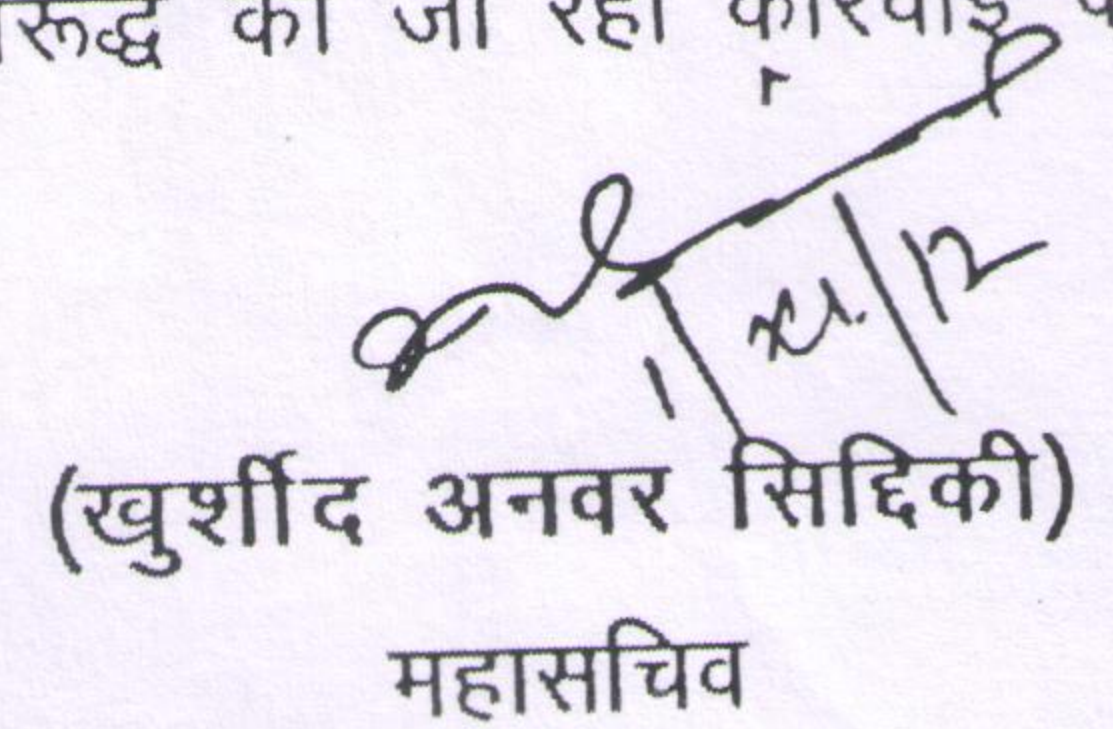 रूद्ध की जा रही कार्रवाई
1/XI/12
(खुर्शीद अनवर सिद्दिकी)
महासचिव